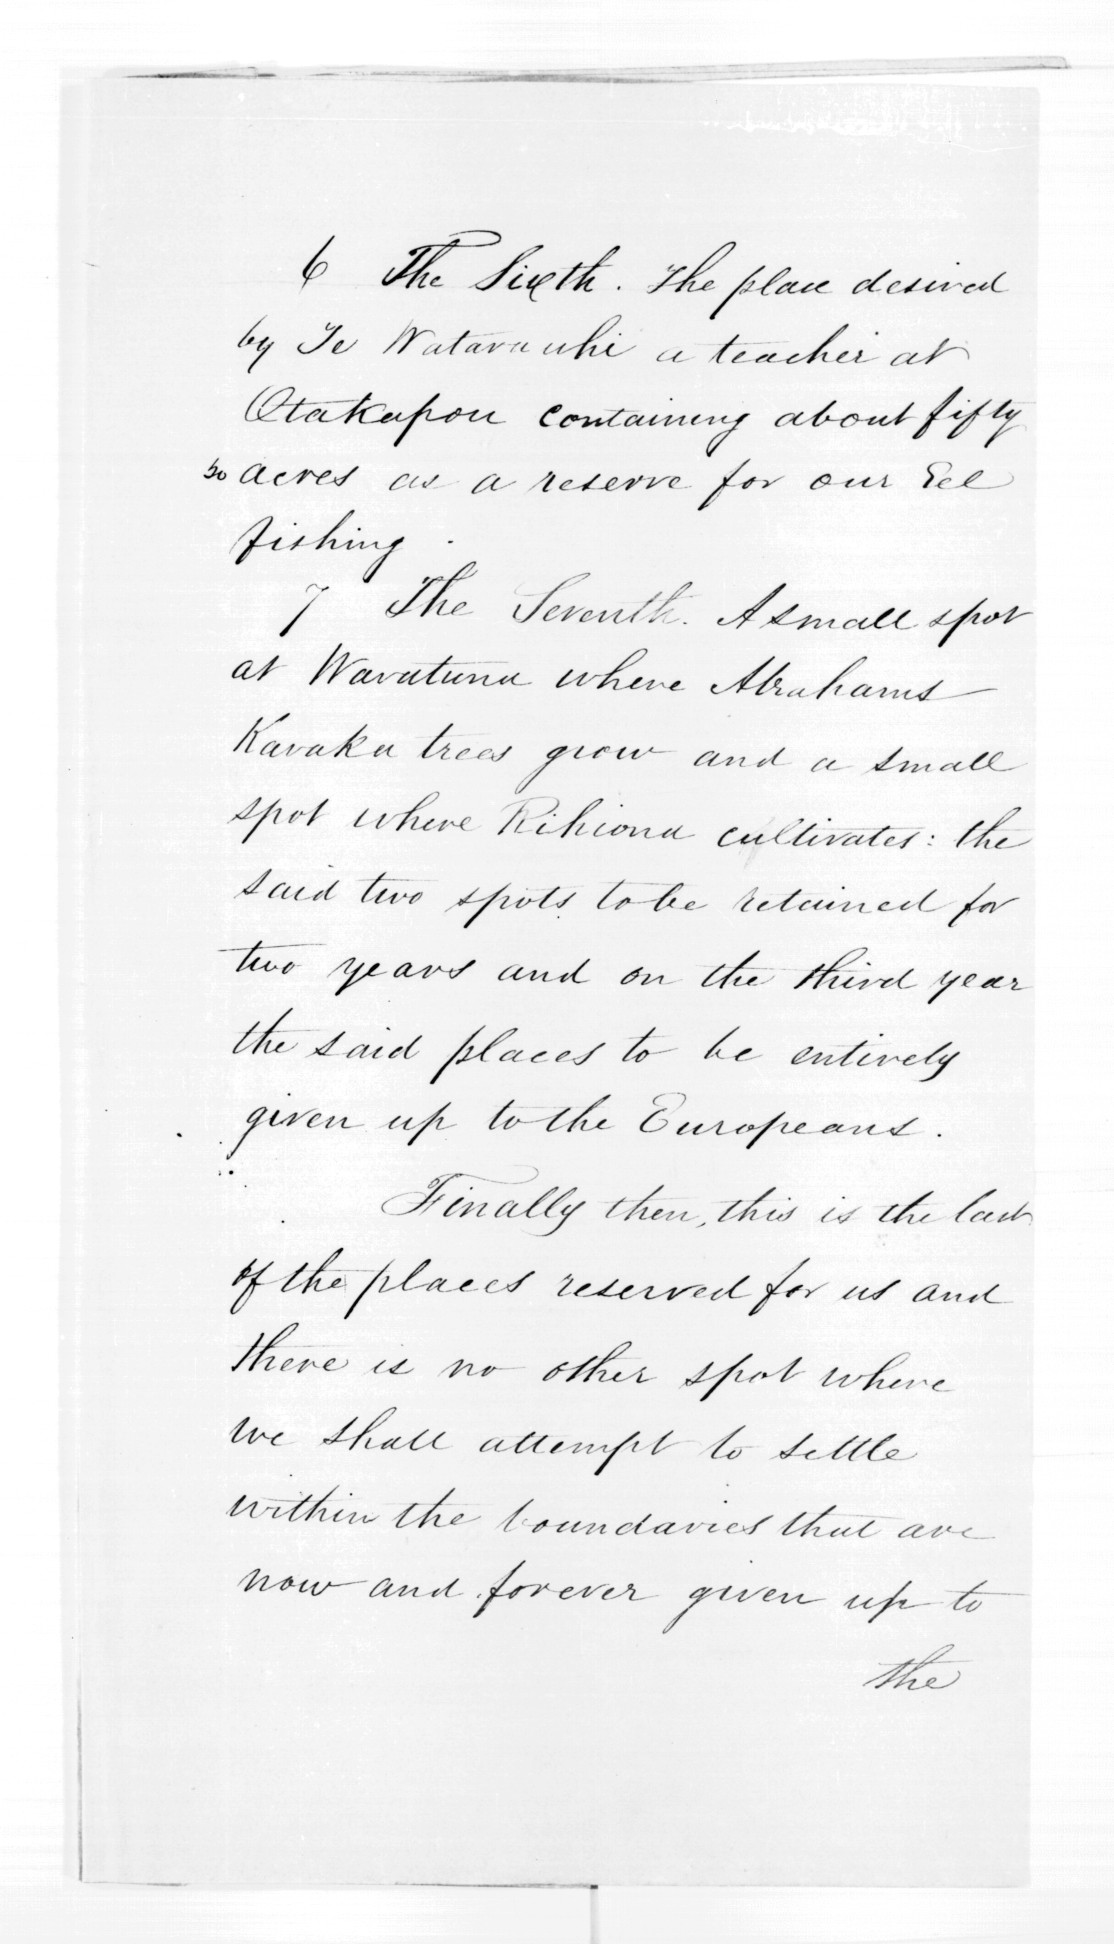 6 The Sixth. The place desired
by Te Watarauhi a teacher at
Otakapou containing about fifty
50 acres as a reserve for our Eel
fishing.
7 The Seventh. A small spot
at Waratuna where Abrahams
Karaka trees grow and a small
spot where Rihiona cultivates: the
said two spots to be retained for
two years and on the third year
the said places to be entirely
given up to the Europeans.
Finally then, this is the last
of the places reserved for us and
there is no other spot where
we shall attempt to settle
within the boundaries that are
now and forever given up to
the